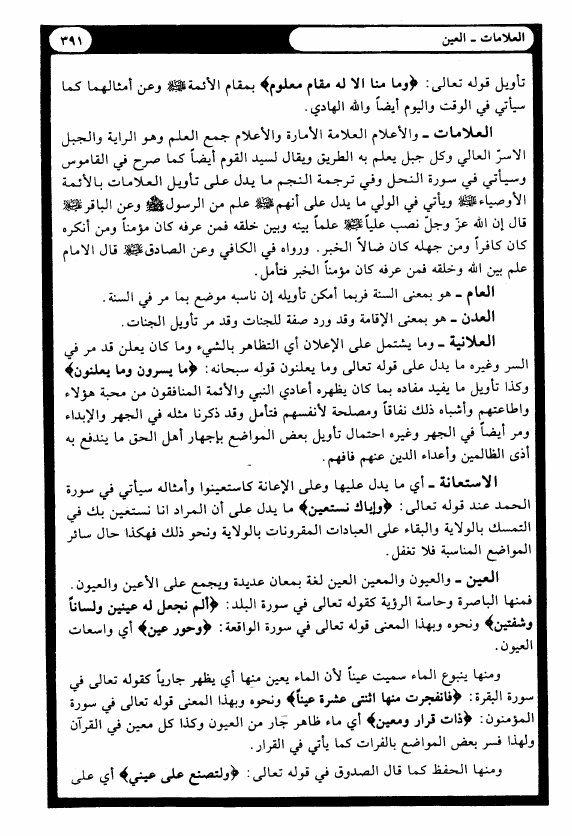 العلامات ـ العين
٣٩١
تأويل قوله تعالى: ﴿وما منا الا له مقام معلوم﴾ بمقام الأئمة ﷺ وعن أمثالهما كما
سيأتي في الوقت واليوم أيضاً والله الهادي.
العلامات ـ والأعلام العلامة الأمارة والأعلام جمع العلم وهو الراية والجبل
الاسرّ العالي وكل جبل يعلم به الطريق ويقال لسيد القوم أيضاً كما صرح في القاموس
وسيأتي في سورة النحل وفي ترجمة النجم ما يدل على تأويل العلامات بالأئمة
الأوصياء ﷺ ويأتي في الولي ما يدل على أنهم ﷺ علم من الرسول ﷺ وعن الباقر ﷺ
قال إن الله عزّ وجلّ نصب علياً ﷺ علماً بينه وبين خلقه فمن عرفه كان مؤمناً ومن أنكره
كان كافراً ومن جهله كان ضالاً الخبر. ورواه في الكافي وعن الصادق ﷺ قال الامام
علم بين الله وخلقه فمن عرفه كان مؤمناً الخبر فتأمل.
العام ـ هو بمعنى السنة فربما أمكن تأويله إن ناسبه موضع بما مر في السنة.
العدن ـ هو بمعنى الإقامة وقد ورد صفة للجنات وقد مر تأويل الجنات.
العلانية ـ وما يشتمل على الإعلان أي التظاهر بالشيء وما كان يعلن قد مر في
السر وغيره ما يدل على قوله تعالى وما يعلنون قوله سبحانه: ﴿ما يسرون وما يعلنون﴾
وكذا تأويل ما يفيد مفاده بما كان يظهره أعادي النبي والأئمة المنافقون من محبة هؤلاء
واطاعتهم وأشباه ذلك نفاقاً ومصلحة لأنفسهم فتأمل وقد ذكرنا مثله في الجهر والإبداء
ومر أيضاً في الجهر وغيره احتمال تأويل بعض المواضع بإجهار أهل الحق ما يندفع به
أذى الظالمين وأعداء الدين عنهم فافهم.
الاستعانة ـ أي ما يدل عليها وعلى الإعانة كاستعينوا وأمثاله سيأتي في سورة
الحمد عند قوله تعالى: ﴿وإياك نستعين﴾ ما يدل على أن المراد انا نستعين بك في
التمسك بالولاية والبقاء على العبادات المقرونات بالولاية ونحو ذلك فهكذا حال سائر
المواضع المناسبة فلا تغفل.
العين ـ والعيون والمعين العين لغة بمعان عديدة ويجمع على الأعين والعيون.
فمنها الباصرة وحاسة الرؤية كقوله تعالى في سورة البلد: ﴿ألم نجعل له عينين ولساناً
وشفتين﴾ ونحوه وبهذا المعنى قوله تعالى في سورة الواقعة: ﴿وحور عين﴾ أي واسعات
العيون.
ومنها ينبوع الماء سميت عيناً لأن الماء يعين منها أي يظهر جارياً كقوله تعالى في
سورة البقرة: ﴿فانفجرت منها اثنتى عشرة عيناً﴾ ونحوه وبهذا المعنى قوله تعالى في سورة
المؤمنون: ﴿ذات قرار ومعين﴾ أي ماء ظاهر جار من العيون وكذا كل معين في القرآن
ولهذا فسر بعض المواضع بالفرات كما يأتي في القرار.
ومنها الحفظ كما قال الصدوق في قوله تعالى: ﴿ولتصنع على عيني﴾ أي على